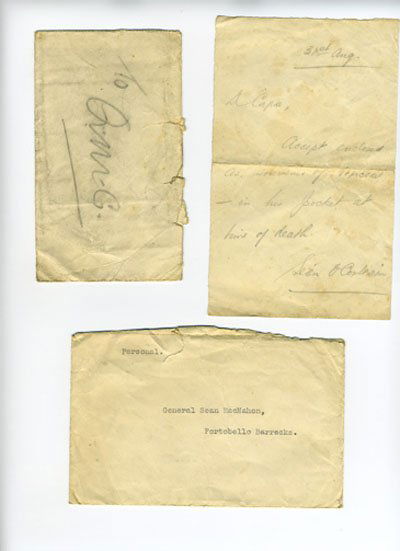 To
Q.M.G.
31st Aug.
Dr Capa,
Accept enclosed
as souvenir of
— in his pocket at
time of death.
Seán
Personal.
General Sean MacMahon,
Portobello Barracks.